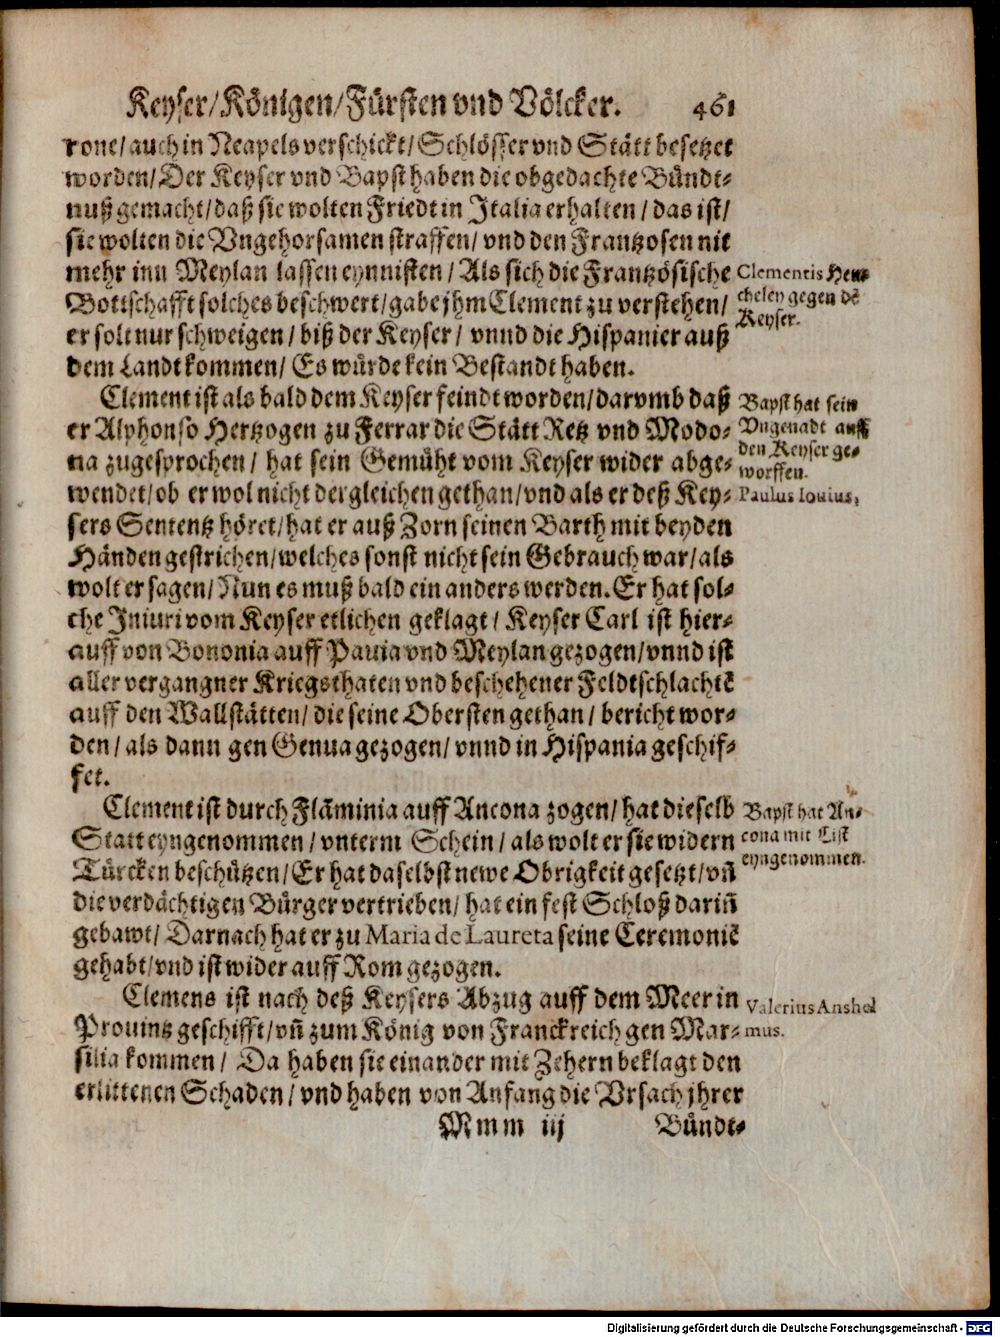 Keyser/Königen/Fürsten vnd Völcker. 461
rone/auch in Neapels verschickt/Schlösser vnd Stätt besetzet
worden/Der Keyser vnd Bapst haben die obgedachte Bündt-
nuß gemacht/daß sie wolten Friedt in Italia erhalten/das ist/
sie wolten die Vngehorsamen straffen/vnd den Frantzosen nit
mehr inn Meylan lassen eynnisten/Als sich die Frantzösische
Bottschafft solches beschwert/gabe jhm Clement zu verstehen/
er solt nur schweigen/biß der Keyser/vnnd die Hispanier auß
dem Landt kommen/Es würde kein Bestandt haben.
Clementis Heu-
cheley gegen dē
Keyser.
Clement ist als bald dem Keyser feindt worden/darvmb daß
er Alphonso Hertzogen zu Ferrar die Stätt Retz vnd Modo-
na zugesprochen/hat sein Gemüht vom Keyser wider abge-
wendet/ob er wol nicht dergleichen gethan/vnd als er deß Key-
sers Sententz höret/hat er auß Zorn seinen Barth mit beyden
Händen gestrichen/welches sonst nicht sein Gebrauch war/als
wolt er sagen/Nun es muß bald ein anders werden. Er hat sol-
che Iniuri vom Keyser etlichen geklagt/Keyser Carl ist hier-
auff von Bononia auff Pauia vnd Meylan gezogen/vnnd ist
aller vergangner Kriegsthaten vnd beschehener Feldtschlachtē
auff den Wallstätten/die seine Obersten gethan/bericht wor-
den/als dann gen Genua gezogen/vnnd in Hispania geschif-
fet.
Bapst hat sein
Vngenadt auff
den Keyser ge-
worffen.
Paulus Iouius.
Clement ist durch Flāminia auff Ancona zogen/hat dieselb
Statt eyngenommen/vnterm Schein/als wolt er sie widern
Türcken beschützen/Er hat daselbst newe Obrigkeit gesetzt/vñ
die verdächtigen Bürger vertrieben/hat ein fest Schloß dariñ
gebawt/Darnach hat er zu Maria de Laureta seine Ceremoniē
gehabt/vnd ist wider auff Rom gezogen.
Bapst hat An-
cona mit List
eyngenommen.
Clemens ist nach deß Keysers Abzug auff dem Meer in
Prouintz geschifft/vñ zum König von Franckreich gen Mar-
silia kommen/Da haben sie einander mit Zehern beklagt den
erlittenen Schaden/vnd haben von Anfang die Vrsach jhrer
Valerius Anshel
mus.
Mmm iij Bündt-
Digitalisierung gefördert durch die Deutsche Forschungsgemeinschaft - DFG